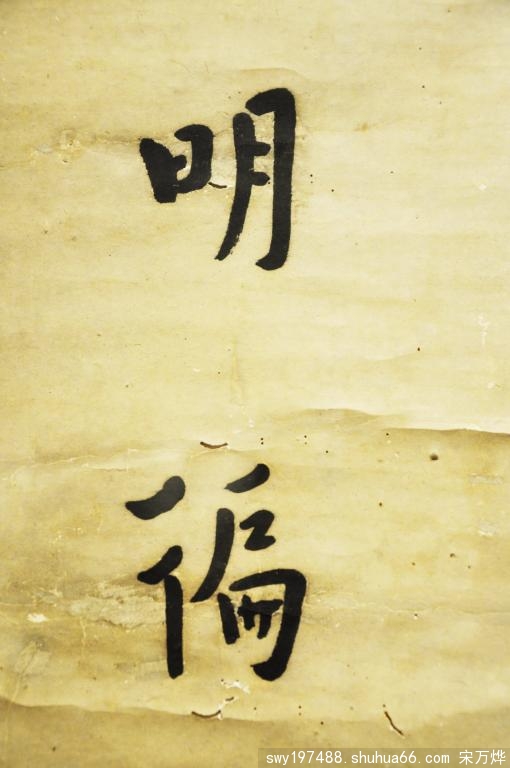 明
徧
swy197488.shuhua66.com 宋万烨